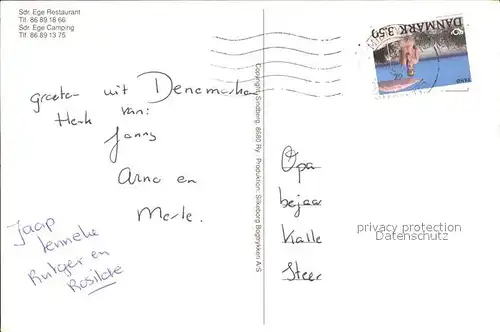 Sdr. Ege Restaurant
Tlf. 86 89 18 66
Sdr. Ege Camping
Tlf. 86 89 13 75
DANMARK 3.50
groeten uit Denemarken
van:
Jonny
Arno en
Merle.
Jaap
Rutger en
Copyright: Sindberg, 8680 Ry · Produktion: Silkeborg Bogtrykkeri A/S
Opa
Kalle
privacy protection
Datenschutz